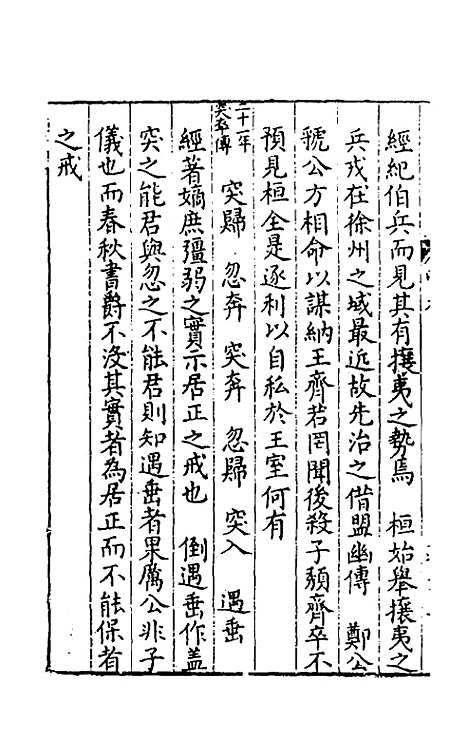 經紀伯兵而見其有攘夷之勢焉　桓始舉攘夷之
兵戎在徐州之域最近故先治之借盟幽傳　鄭公
虢公方相命以謀納王齊若罔聞後殺子頹齊卒不
預見桓全是逐利以自私於王室何有
二十一年
突卒傳
突歸　忽奔　突奔　忽歸　突入　遇垂
經著嫡庶彊弱之實示居正之戒也　倒遇垂作蓋
突之能君與忽之不能君則知遇垂者果厲公非子
儀也而春秋書爵不沒其實者為居正而不能保者
之戒